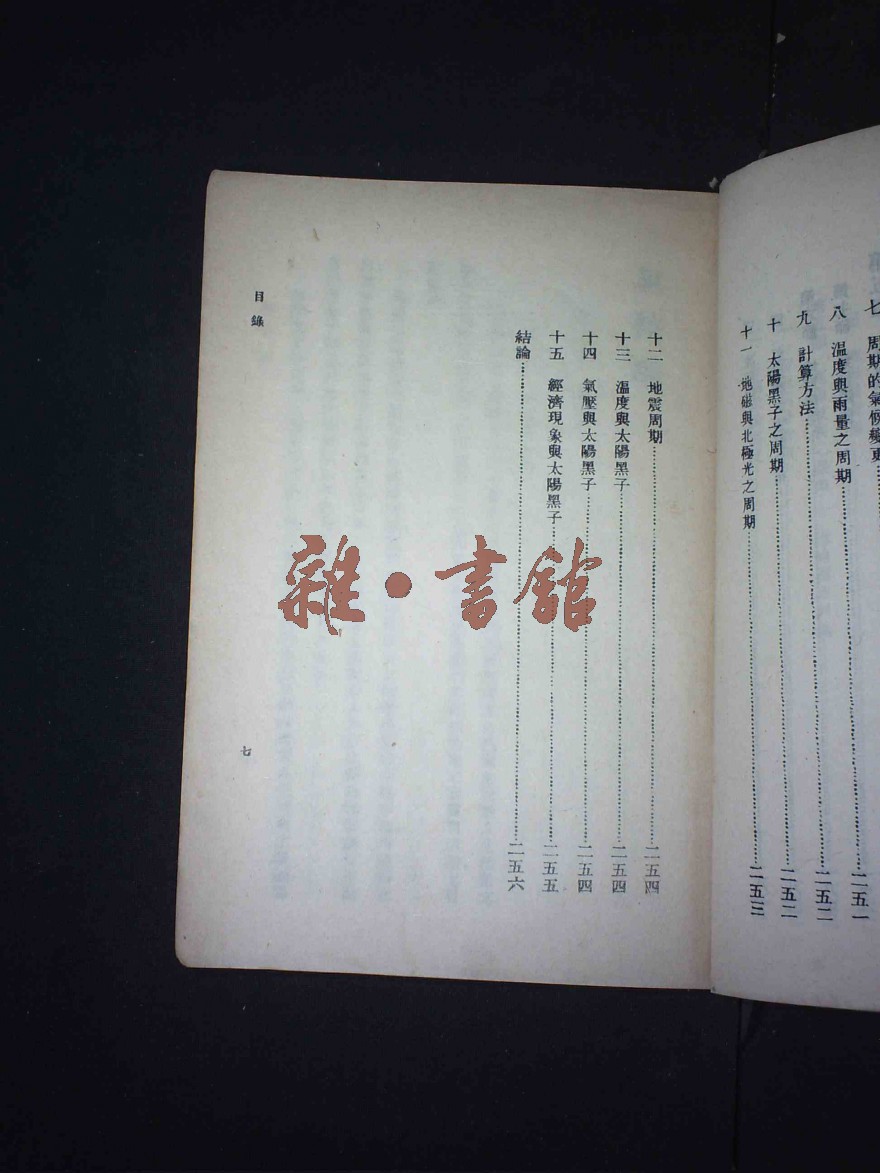 七　周期的氣候變更
八　溫度與雨量之周期……二五一
九　計算方法……二五二
十　太陽黑子之周期……二五二
十一　地磁與北極光之周期……二五三
十二　地震周期……二五四
十三　溫度與太陽黑子……二五四
十四　氣壓與太陽黑子……二五四
十五　經濟現象與太陽黑子……二五五
結論……二五六
目錄
七
雜·書館